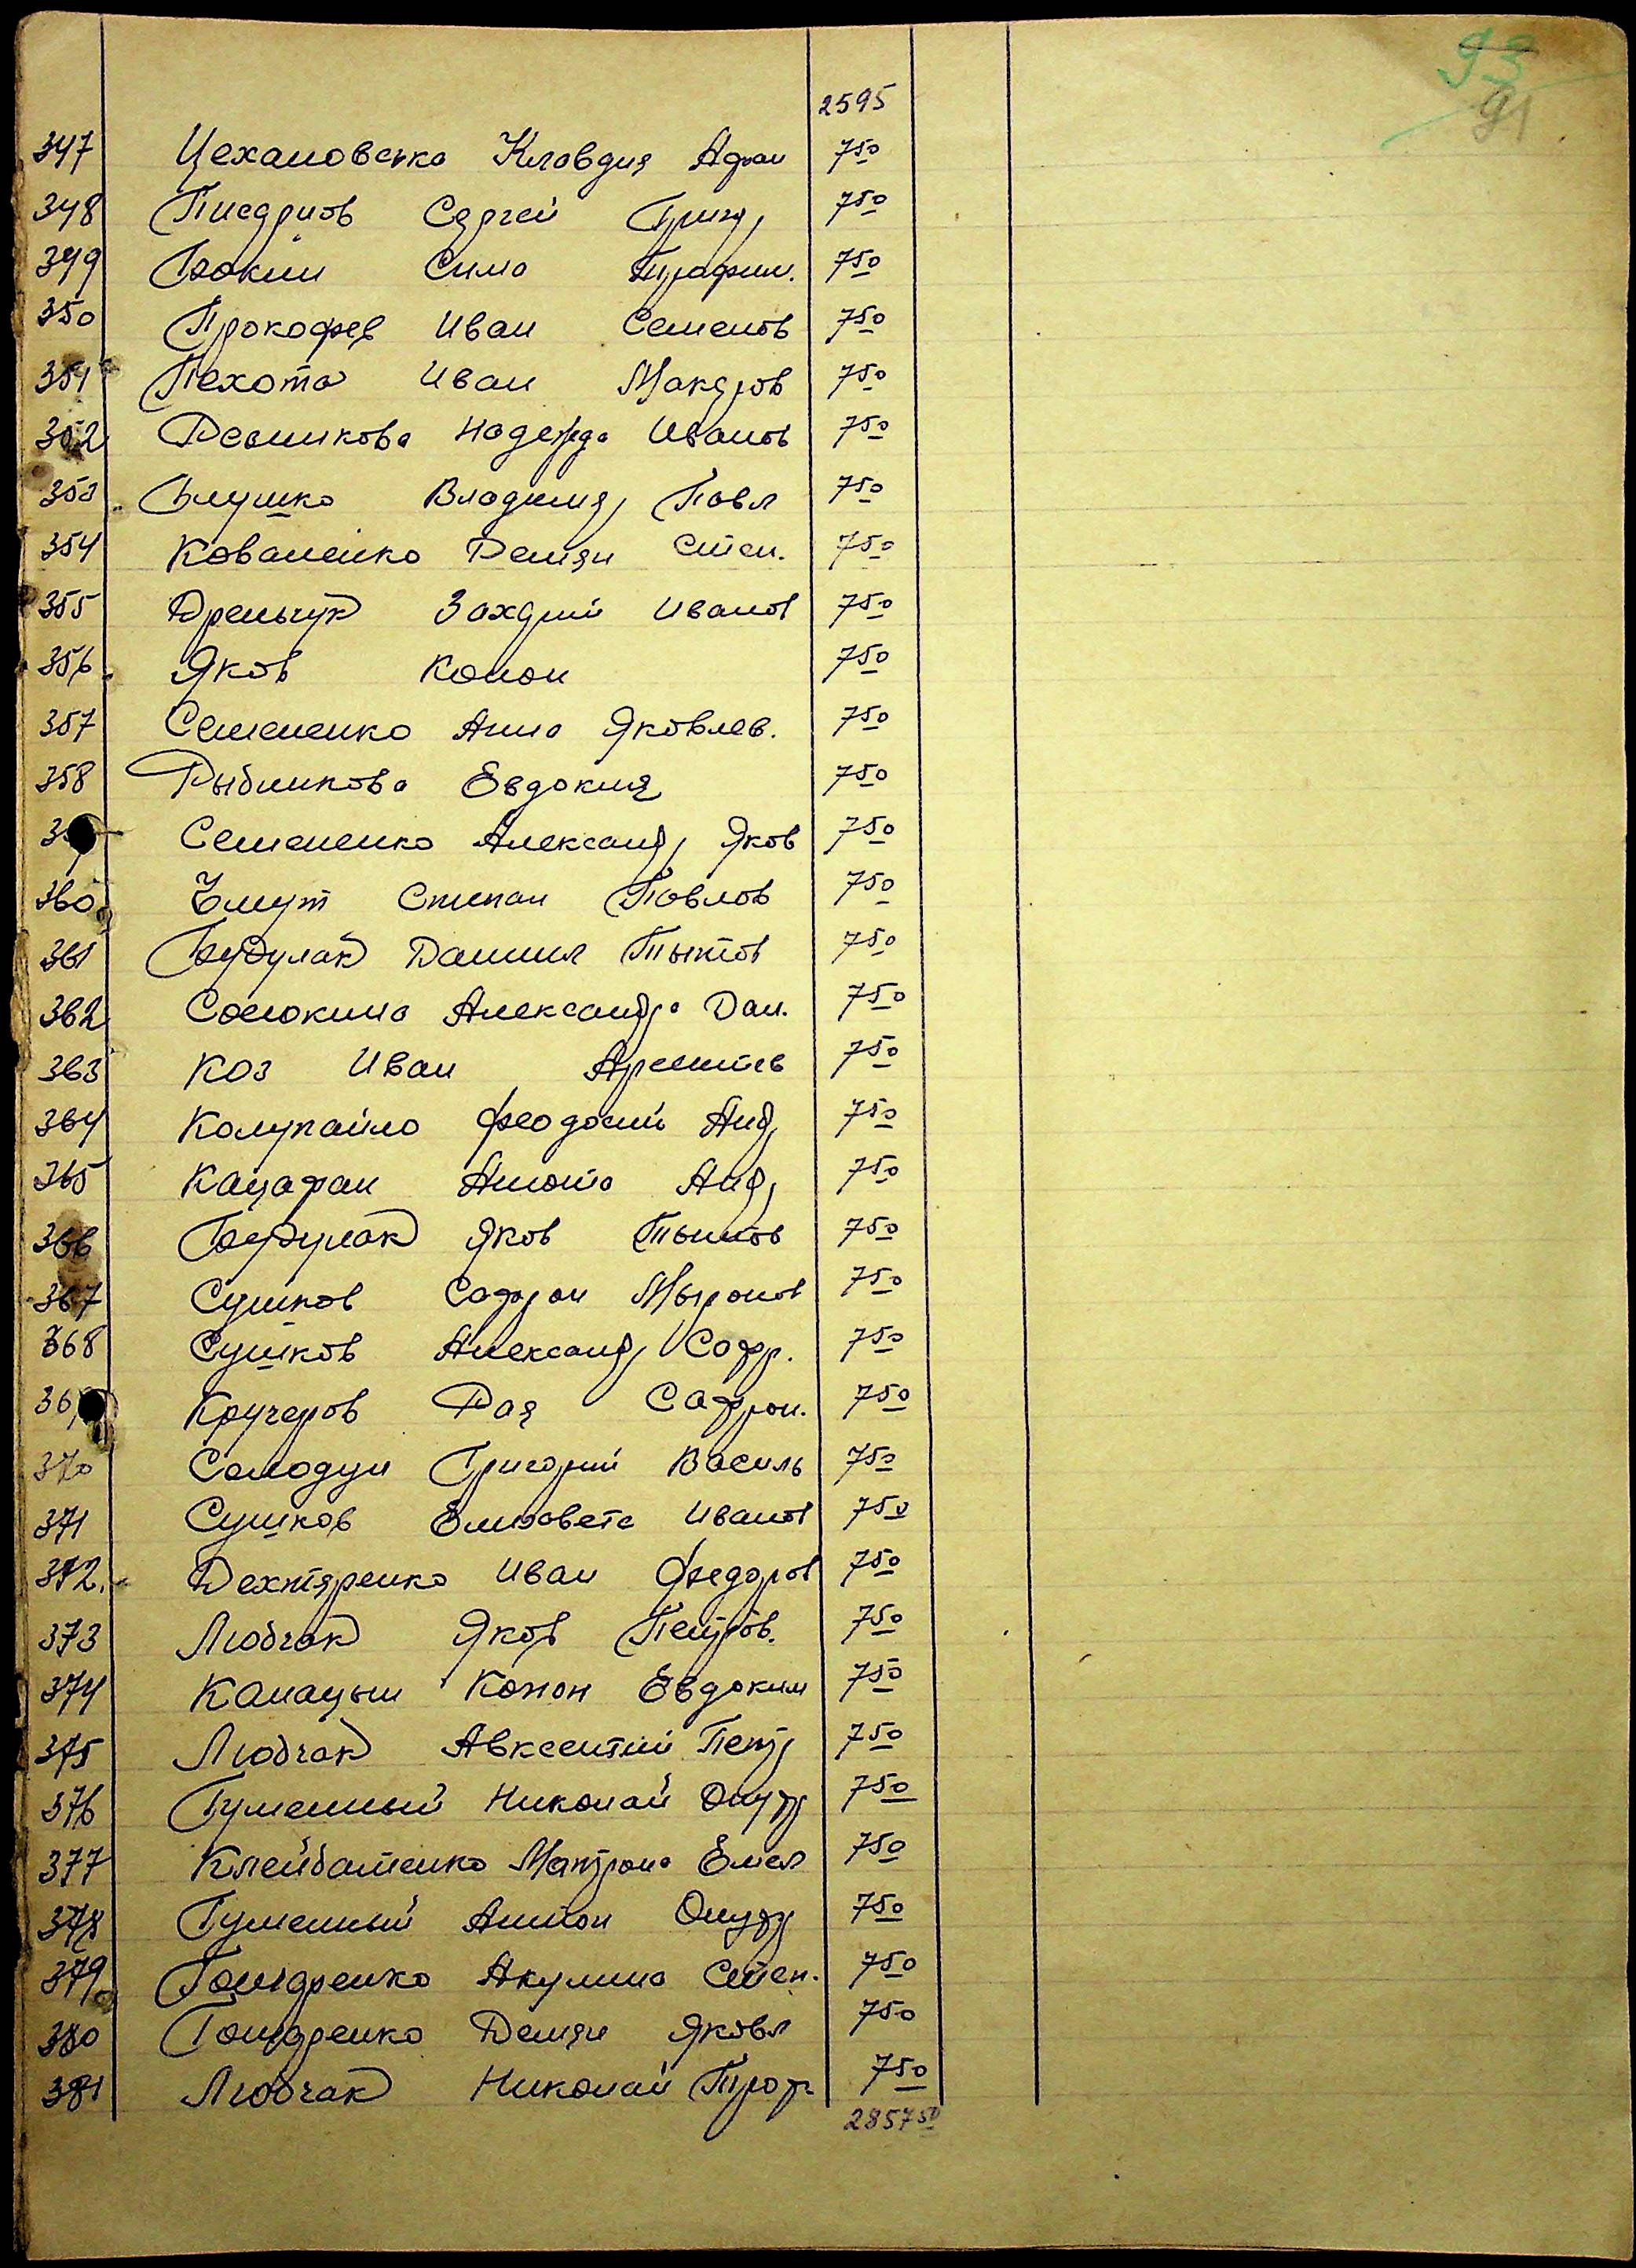 93
91
2595
347 Цехановська Клавдия Афан 7 50
348 Сергей Григ 7 50
349 Бокии Сима Трафим. 7 50
350 Прокофев Иван Семенов 7 50
351 Пехота Иван Макаров 7 50
352 Надежда Иванов 7 50
353 Глушка Владимир Павл 7 50
354 Коваленко Демян Степ. 7 50
355 Дремчук Захарий Иванов 7 50
356 Яков Конон 7 50
357 Семененко Анна Яковлев. 7 50
358 Рыбникова Евдокия 7 50
Семененко Александр Яков 7 50
360 Степан Павлов 7 50
361 Будулак Даниил Тытов 7 50
362 Александра Дан. 7 50
363 Коз Иван 7 50
364 Колупайло Феодосий Анд 7 50
365 Кацафан Анюта Анд 7 50
366 Будулак Яков Тытов 7 50
367 Сушков Сафрон Мыронов 7 50
368 Сушков Александр Софр. 7 50
36 Кручеров Рая Сафрон. 7 50
370 Солодун Григорий Василь 7 50
371 Сушков Елизовета Иванов 7 50
372. Дехтяренко Иван Федоров 7 50
373 Любчак Яков Петров. 7 50
374 Канацын Конон Евдоким 7 50
375 Любчак Авксентий Петр 7 50
376 Гуменный Николай Онуфр 7 50
377 Клейбатенко Матрона Емел 7 50
378 Гуменный Антон Онуфр 7 50
379 Гондренко Акулина Степ. 7 50
380 Гондренко Демян Яковл 7 50
381 Любчак Николай Проф 7 50
2857 50